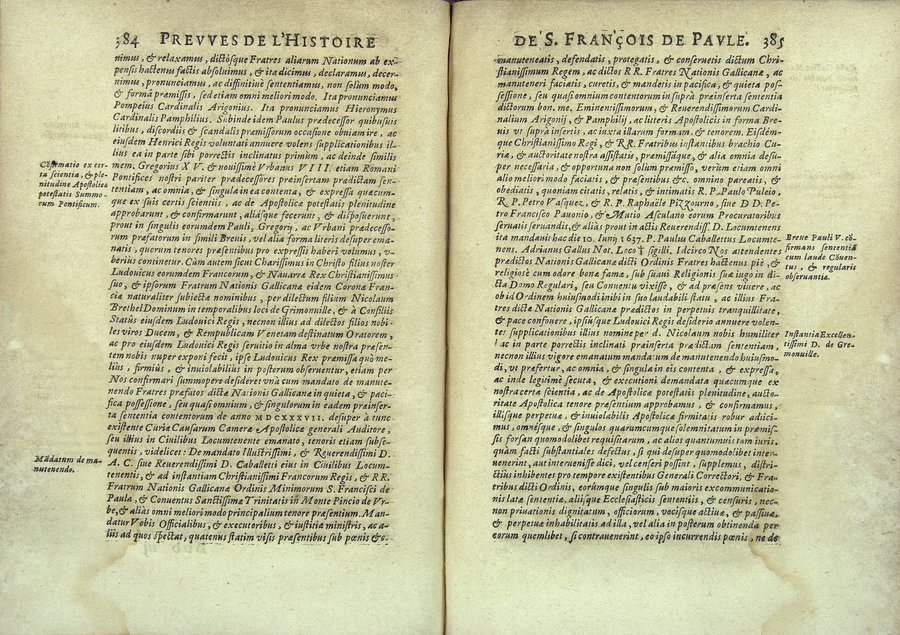 384 PREVVES DE L'HISTOIRE
nimus, & relaxamus, dictósque Fratres aliarum Nationum ab ex-
pensis hactenus factis absoluimus, & ita dicimus, declaramus, decer-
nimus, pronunciamus, ac diffinitiuè sententiamus, non solùm modo,
& formâ præmissis, sed etiam omni meliori modo. Ita pronunciamus
Pompeius Cardinalis Arigonius. Ita pronunciamus Hieronymus
Cardinalis Pamphilius. Subinde idem Paulus prædecessor quibusuis
litibus, discordiis & scandalis præmissorum occasione obuiam ire, ac
eiusdem Henrici Regis voluntati annuere volens supplicationibus il-
lius ea in parte sibi porrectis inclinatus primùm, ac deinde similis
mem. Gregorius XV. & nouissimè Vrbanus VIII. etiam Romani
Pontifices nostri pariter prædecessores præinsertam prædictam sen-
tentiam, ac omnia, & singula in ea contenta, & expressa quæcum-
que ex suis certis scientiis, ac de Apostolicæ potestatis plenitudine
approbarunt, & confirmarunt, aliásque fecerunt, & disposuerunt,
prout in singulis eorumdem Pauli, Gregory, ac Vrbani prædecesso-
rum præfatorum in simili Breuis, vel alia forma literis desuper ema-
natis, quorum tenores præsentibus pro expressis haberi volumus, v-
berius continetur. Cùm autem sicut Charissimus in Christo filius noster
Ludouicus eorumdem Francorum, & Nauarræ Rex Christianissimus
suo, & ipsorum Fratrum Nationis Gallicanæ eidem Coronæ Fran-
ciæ naturaliter subiectæ nominibus, per dilectum filium Nicolaum
Brethel Dominum in temporalibus loci de Grimonuille, & à Consiliis
Statûs eiusdem Ludouici Regis, necnon illius ad dilectos filios nobi-
les viros Ducem, & Rempublicam Venetam destinatum Oratorem,
ac pro eiusdem Ludouici Regis seruitio in alma vrbe nostra præsen-
tem nobis nuper exponi fecit, ipse Ludouicus Rex præmissa quò me-
lius, firmiùs, & inuiolabilis in posterum obseruentur, etiam per
Nos confirmari summopere desideret vnà cum mandato de manute-
nendo Fratres præfatos dictæ Nationis Gallicanæ in quieta, & paci-
fica possessione, seu quasi omnium, & singulorum in eadem præinser-
ta sententia contentorum de anno MDCXXXVII. desuper à tunc
existente Curiæ Causarum Cameræ Apostolicæ generali Auditore,
seu illius in Ciuilibus Locumtenente emanato, tenoris etiam subse-
quentis, videlicet: De mandato Illustrissimi, & Reuerendissimi D.
A. C. siue Reuerendissimi D. Caballetti eius in Ciuilibus Locum-
tenentis, & ad instantiam Christianissimi Francorum Regis, & RR.
Fratrum Nationis Gallicanæ Ordinis Minimorum S. Francisci de
Paula, & Conuentus Sanctissimæ Trinitatis in Monte Pincio de Vr-
be, & aliàs omni meliori modo principalium tenore præsentium. Man-
datur Vobis Officialibus, & executoribus, & iustitiæ ministris, ac a-
liis ad quos spectat, quatenus statim visis præsentibus sub pœnis &c.
Cõfirmatio ex cer-
ta scientia, & ple-
nitudine Apostolicæ
potestatis Summo-
rum Pontificum.
Mãdatum de ma-
nutenendo.
DE S. FRANÇOIS DE PAVLE. 385
manuteneatis, defendatis, protegatis, & conseruetis dictum Chri-
stianissimum Regem, ac dictos RR. Fratres Nationis Gallicanæ, ac
manuteneri faciatis, curetis, & mandetis in pacifica, & quieta pos-
sessione, seu quasi omnium contentorum in suprà præinserta sententia
dictorum bon. me. Eminentissimorum, & Reuerendissimorum Cardi-
nalium Arigonij, & Pamphilij, ac litteris Apostolicis in forma Bre-
uis vt suprà insertis, ac iuxta illarum formam, & tenorem. Eisdém-
que Christianissimo Regi, & RR. Fratribus instantibus brachio Cu-
riæ, & auctoritate nostra assistatis, præmissáque, & alia omnia desu-
per necessaria, & opportuna non solùm præmisso, verùm etiam omni
alio meliori modo faciatis, & præsentibus &c. omnino pareatis, &
obediatis, quoniam citatis, relatis, & intimatis R. P. Paulo Puleio,
R. P. Petro Vasquez, & R. P. Raphaële Pizzourno, siue D D. Pe-
tro Francisco Pauonio, & Mutio Asculano eorum Procuratoribus
seruatis seruandis, & aliàs prout in actis Reuerendiss. D. Locumtenens
ita mandauit hac die 10. Iuny 1637. P. Paulus Caballettus Locumte-
nens. Adrianus Gallus Not. Loco † sigilli, Idcirco Nos attendentes
prædictos Nationis Gallicanæ dicti Ordinis Fratres hactenus piè, &
religiosè cum odore bonæ famæ, sub suaui Religionis suæ iugo in di-
cta Domo Regulari, seu Conuentu vixisse, & ad præsens viuere, ac
ob id Ordinem huiusmodi inibi in suo laudabili statu, ac illius Fra-
tres dictæ Nationis Gallicanæ prædictos in perpetua tranquillitate,
& pace confouere, ipsiusque Ludouici Regis desiderio annuere volen-
tes supplicationibus illius nomine per d. Nicolaum nobis humiliter
ac in parte porrectis inclinati præinserta prædictam sententiam,
necnon illius vigore emanatum mandatum de manutenendo huiusmo-
di, vt præfertur, ac omnia, & singula in eis contenta, & expressa,
ac inde legitimè secuta, & executioni demandata quæcumque ex
nostra certa scientia, ac de Apostolicæ potestatis plenitudine, aucto-
ritate Apostolica tenore præsentium approbamus, & confirmamus,
illísque perpetuæ, & inuiolabilis Apostolicæ firmitatis robur adiici-
mus, omnésque, & singulos quarumcumque solemnitatum in præmis-
sis forsan quomodolibet requisitarum, ac alios quantumuis tam iuris,
quàm facti substantiales defectus, si qui desuper quomodolibet inter-
uenerint, aut interuenisse dici, vel censeri possint, supplemus, distri-
ctiùs inhibentes pro tempore existentibus Generali Correctori, & Fra-
tribus dicti Ordinis, eorúmque singulis sub maioris excommunicatio-
nis latæ sententiæ, aliísque Ecclesiasticis sententiis, & censuris, nec-
non priuationis dignitatum, officiorum, vocísque actiuæ, & passiuæ,
& perpetuæ inhabilitatis ad illa, vel alia in posterum obtinenda per
eorum quemlibet, si contrauenerint, eo ipso incurrendis pœnis, ne de
Breue Pauli V. cõ-
firmans sententiã
cum laude Cõuen-
tus, & regularis
obseruantiæ.
Instantia Excellen-
tissimi D. de Gre-
monuille.